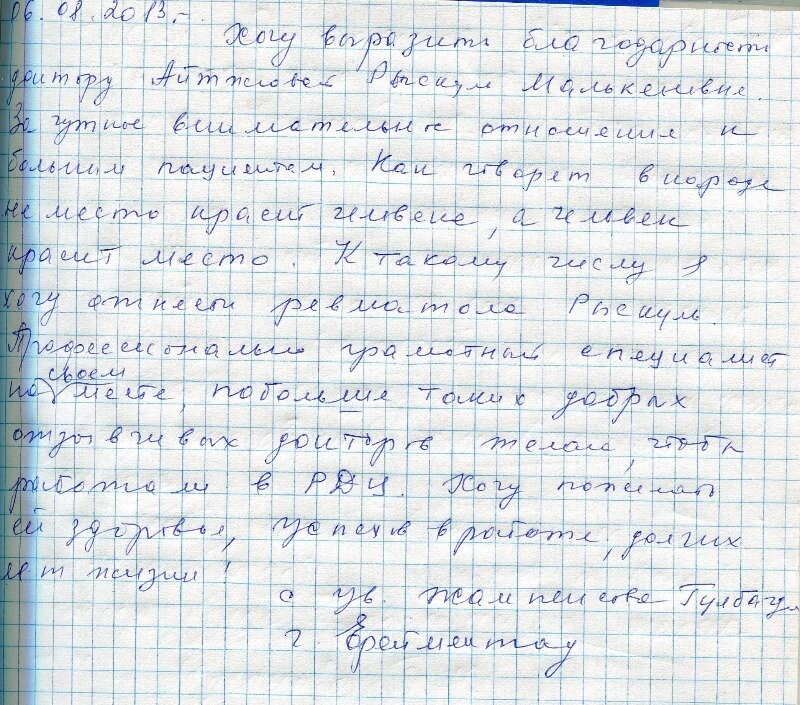 06.08.2013г.
Хочу выразить благодарность
доктору Айтжановой Рыскуль Малькеновне.
За чуткое внимательное отношение к
больным пациентам. Как говорят в народе
не место красит человека, а человек
красит место. К такому числу я
хочу отнести ревматолога Рыскуль.
Профессионально грамотный специалист
на своем месте, побольше таких добрых
отзывчивых докторов желаю, чтобы
работали в РДЦ. Хочу пожелать
ей здоровья, успехов в работе, долгих
лет жизни!
с ув.
г. Ерейментау